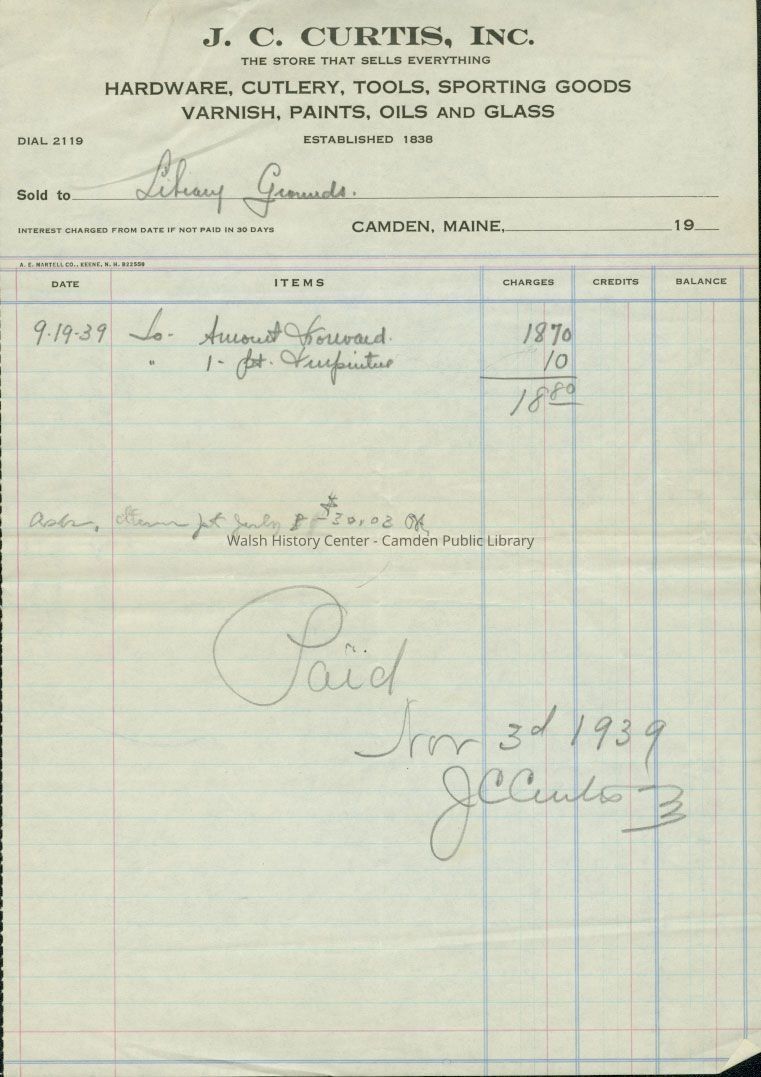 J. C. CURTIS, INC.
THE STORE THAT SELLS EVERYTHING
HARDWARE, CUTLERY, TOOLS, SPORTING GOODS
VARNISH, PAINTS, OILS AND GLASS
DIAL 2119 ESTABLISHED 1838
Sold to Library Grounds.
INTEREST CHARGED FROM DATE IF NOT PAID IN 30 DAYS CAMDEN, MAINE, 19
A. E. MARTELL CO., KEENE, N. H. B22559
DATE ITEMS CHARGES CREDITS BALANCE
9-19-39 To - Amount Forward. 1870
" 1 - pt. Turpintine 10
18 80
$30.03 OK
Walsh History Center - Camden Public Library
Paid
Nov 3d 1939
J C Curtis